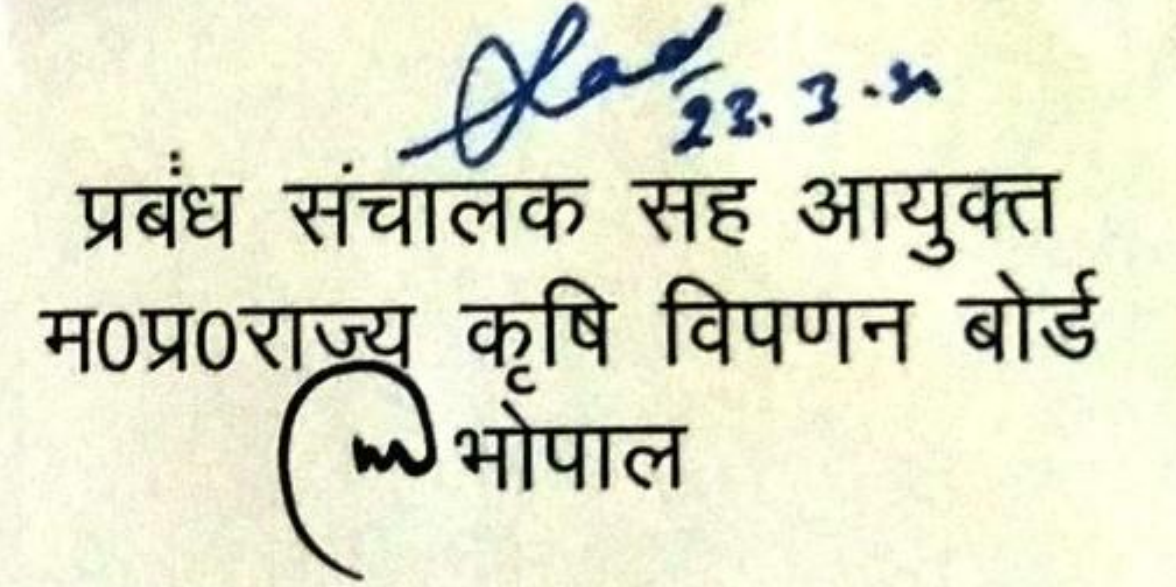 23.3.21
प्रबंध संचालक सह आयुक्त
म0प्र0राज्य कृषि विपणन बोर्ड
भोपाल